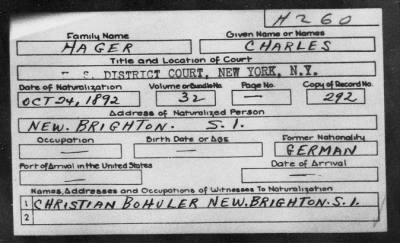 H260
Family Name Given Name or Names
HAGER CHARLES
Title and Location of Court
U. S. DISTRICT COURT, NEW YORK, N.Y.
Date of Naturalization Volume or Bundle No. Page No. Copy of Record No.
OCT 24, 1892 32 — 292
Address of Naturalized Person
NEW. BRIGHTON. S. I.
Occupation Birth Date or Age Former Nationality
— — GERMAN
Port of Arrival in the United States Date of Arrival
— —
Names, Addresses and Occupations of Witnesses To Naturalization
1 CHRISTIAN BOHULER NEW. BRIGHTON. S. I.
2